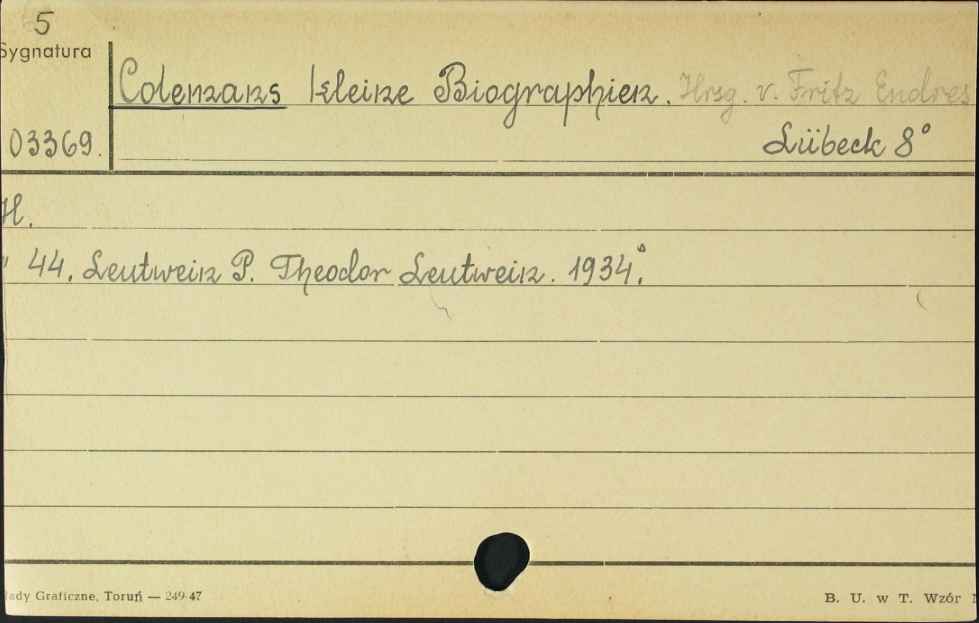 5
Sygnatura
Colemans kleine Biographien. Hrsg. v. Fritz Endres
03369.
Lübeck 8°
H.
" 44. Leutwein P. Theodor Leutwein. 1934.
ady Graficzne, Toruń — 249-47
B. U. w T. Wzór